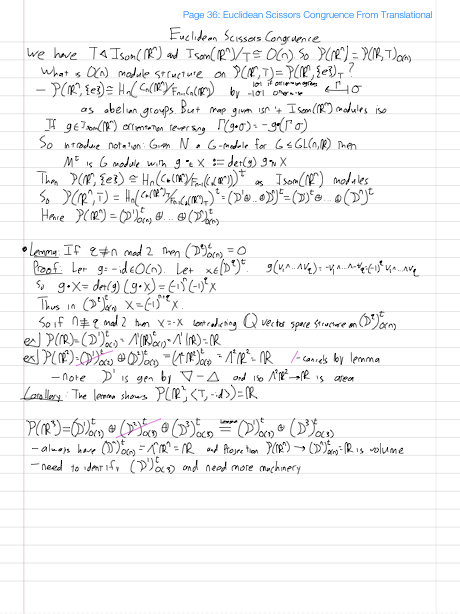 Page 36: Euclidean Scissors Congruence From Translational
Euclidean Scissors Congruence
We have T ◁ Isom(ℝⁿ) and Isom(ℝⁿ)/T ≅ O(n). So P(ℝⁿ) = P(ℝⁿ,T)_O(n)
What is O(n) module structure on P(ℝⁿ,T) = P(ℝⁿ,{e})_T ?
- P(ℝⁿ,{e}) ≅ Hₙ(Cₙ(ℝⁿ)/Fₙ₋₁Cₙ(ℝⁿ)) by
as abelian groups. But map given isn't Isom(ℝⁿ) modules iso
If g∈Isom(ℝⁿ) orientation reversing Γ(g•σ) = -g•(Γσ)
So introduce notation: Given N a G-module for G ≤ GL(n,ℝ) then
Mᵗ is G module with := det(g)
Then P(ℝⁿ,{e}) ≅ Hₙ(C*(ℝⁿ)/Fₙ₋₁C*(ℝⁿ))ᵗ as Isom(ℝⁿ) modules
So P(ℝⁿ,T) = = (D¹⊕...⊕Dⁿ)ᵗ = (D¹)ᵗ⊕...⊕(Dⁿ)ᵗ
Hence P(ℝⁿ) = (D¹)ᵗ_O(n) ⊕...⊕ (Dⁿ)ᵗ_O(n)
• Lemma: If q≢n mod 2 then (D^q)ᵗ_O(n) = 0
Proof: Let g = -id∈O(n). Let x∈(D^q)ᵗ.
So g•x = det(g)(g•x) = (-1)ⁿ(-1)^q x
Thus in (D^q)ᵗ_O(n) x = (-1)^(n+q) x.
So if n≢q mod 2 then x = -x contradicting ℚ vector space structure on (D^q)ᵗ_O(n)
ex) P(ℝ) = (D¹)ᵗ_O(1) = Λ¹(ℝ)ᵗ = Λ¹(ℝ) = ℝ
ex) P(ℝ²) = (D¹)ᵗ_O(2) ⊕ (D²)ᵗ_O(2) = (Λ²ℝ²)ᵗ_O(2) = Λ²ℝ² = ℝ /-cancels by lemma
- note D¹ is gen by ▽ - △ and iso Λ²ℝ² → ℝ is area
Corollary: The lemma shows P(ℝ², <T,-id>) = ℝ
P(ℝ³) = (D¹)ᵗ_O(3) ⊕ (D²)ᵗ_O(3) ⊕ (D³)ᵗ_O(3) =lemma= (D¹)ᵗ_O(3) ⊕ (D³)ᵗ_O(3)
- always have (Dⁿ)ᵗ_O(n) = Λⁿℝⁿ = ℝ and projection P(ℝⁿ) → (Dⁿ)ᵗ_O(n) = ℝ is volume
- need to identify (D¹)ᵗ_O(3) and need more machinery